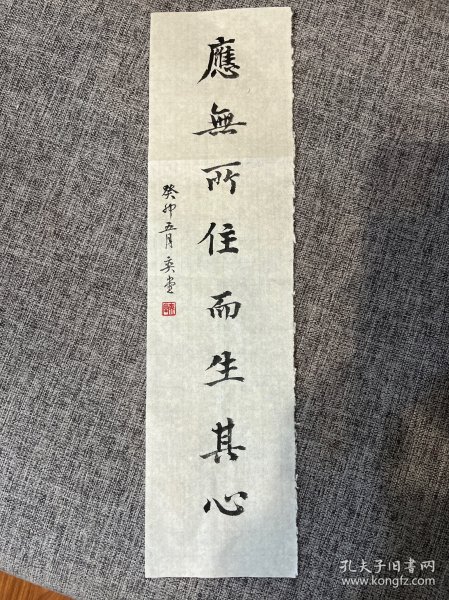 應無所住而生其心
癸卯五月奕堂
孔夫子旧书网
www.kongfz.com